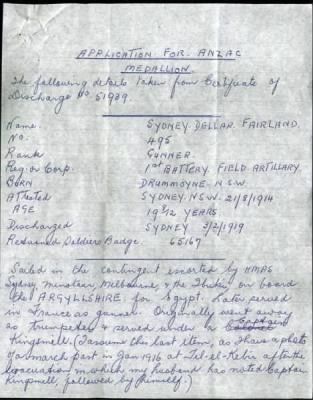 APPLICATION FOR ANZAC
MEDALLION.
The following details taken from Certificate of
Discharge No 51939.
Name. SYDNEY DELLAR FAIRLAND.
No. 495
Rank GUNNER
Reg. or Corp. 1st BATTERY FIELD ARTILLARY
BORN DRUMMOYNE N.S.W.
Attested SYDNEY. N.S.W. 21/8/1914
AGE 19 3/12 YEARS
Discharged SYDNEY 3/2/1919
Returned Soldiers Badge. 65167
Sailed in the contingent escorted by HMAS
Sydney, Melbourne & the on board
the ARGYLLSHIRE for Egypt. Later served
in France as gunner. Originally went away
as Trumpeter & served under a Captain
Kingsmell. (I assume this last item, as I have a photo
of a march past in Jan 1916 at Tel-el-Kebir after the
evacuation in which my husband has noted Captain
Kingsmell followed by himself.)